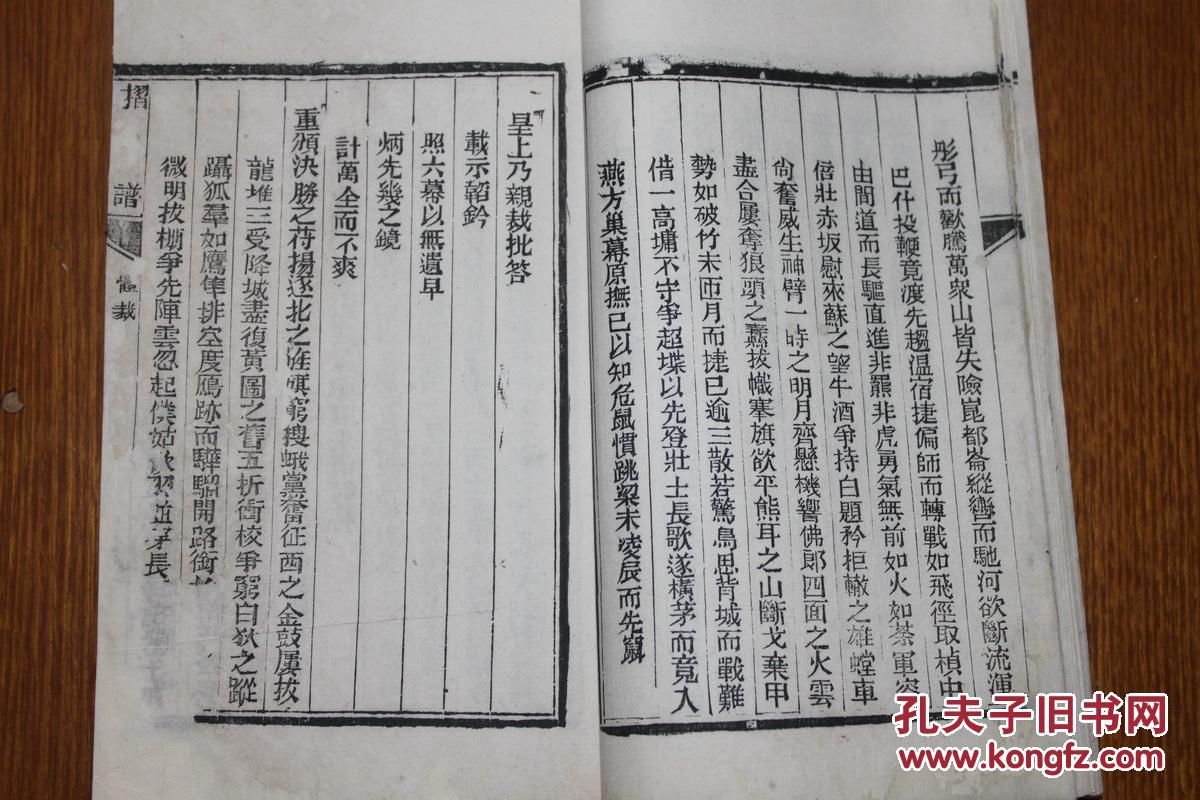 彤弓而歡騰萬衆山皆失險崑都崙縱轡而馳河欲斷流渾
巴什投鞭竟渡先趨溫宿捷偏師而轉戰如飛徑取楨中
由間道而長驅直進非羆非虎勇氣無前如火如荼軍容
倍壯赤坂慰來蘇之望牛酒爭持白題矜拒轍之雄螳車
尙奮威生神臂一時之明月齊懸機響佛郎四面之火雲
盡合屢奪狼頭之纛拔幟搴旗欲平熊耳之山斷戈棄甲
勢如破竹未匝月而捷已逾三散若驚鳥思背城而戰難
借一高墉不守爭超堞以先登壯士長歌遂橫茅而竟入
燕方巢幕原撫已以知危鼠慣跳梁未凌辰而先竄
皇上乃親裁批答
載示韜鈐
照六幕以無遺早
炳先幾之鏡
計萬全而不爽
重頒決勝之符揚逐北之旌旗窮搜蛾黨奮征西之金鼓屢拔
龍堆三受降城盡復黃圖之舊五折衝校爭窮白狄之蹤
躡狐羣如鷹隼排空度鴈跡而驊騮開路銜
微明拔柵爭先陣雲忽起僕姑
長
摺譜
體裁
孔夫子旧书网
www.kongfz.com